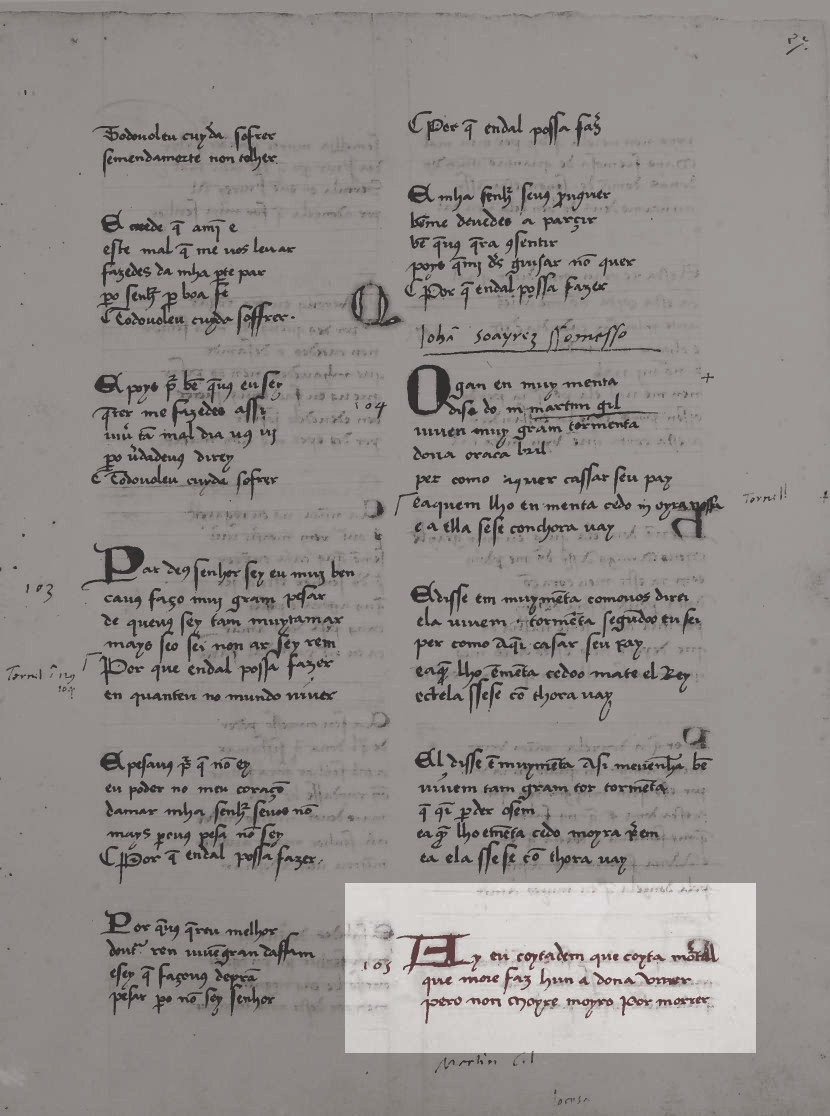 Todouoleu cuyda sofrer
semendamorte non tolher
E uoede q̄ amī e
este mal q̄ me uos leuar
fazedes da mha p̄te par
p̄o senhʳ p̄ boa fe
Todouoleu cuyda soffrer.
E poys p̄ bē q̄uꝯ eu sey
q̄rer me fazedes assi
uiuʳ tā mal dia uꝯ ui
p̄o u̓dadeuꝯ direy
Todouoleu cuyda sofrer
103
Par deꝯ senhor sey eu muj ben
cauꝯ faço muj gram pesar
de queuꝯ sey tam muytamar
mays seo sei non ar sey rem
Por que endal possa fazer
en quanteu no mundo uiuer
Tornel
E pesauꝯ p̄ q̄ nō ey
eu poder no meu coraçō
damar mha senhʳ seuos nō
mays pouꝯ pesa nō sey
Por q̄ endal possa fazer.
Por q̄uꝯ q̄reu melhor
doutʳ ren uiuēgran daffam
esey q̄ façouꝯ depra
pesar p̄o nō sey senhor
Por q̄ endal possa faz̓
E mha senhʳ seuꝯ p̄uguer
bēme deuedes a parçir
bē q̄uꝯ q̄ra ꝯsentir
poys q̄mi d̓s guisar nō quer
Por q̄ endal possa fazer
Q
Johā Soayrez Somesso
104
Ogan en muy menta
dise do m martim gil
uiuen muy gram tormenta
dona oraca bril
per como aquer cassar seu pay
eaquem lho en menta cedo moyra possa
e a ella sese conchora uay
Tornell
E disse em muymēta comouos direi
ela uiuem tormēta segūdoo eu sei
per como aq̄ri casar seu pay
eaq̄ lho ēmēta cedoo mate el Rey
ectela ssese cō thora uay
El disse ē muymēta Asi meuenha bē
uiuem tam gram tor tormēta
q̄ q̄r p̄der osem
ea q̄ lhoemēta cedo moyra p̄em
ea ela ssese cō thora uay
105
Hy eu coytadem que coyta mortal
que moie faz hun a dona uiuer
pero non Moyre moyro por morrer
Martin Gil